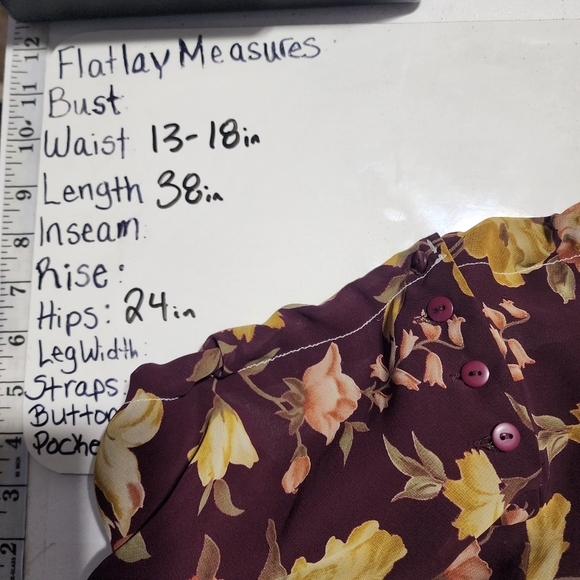 Flatlay Measures
Bust
Waist 13-18in
Length 38in
Inseam:
Rise:
Hips: 24in
Leg Width:
Straps:
Button
Pocke
12
11
10
9
8
7
6
5
4
3
2